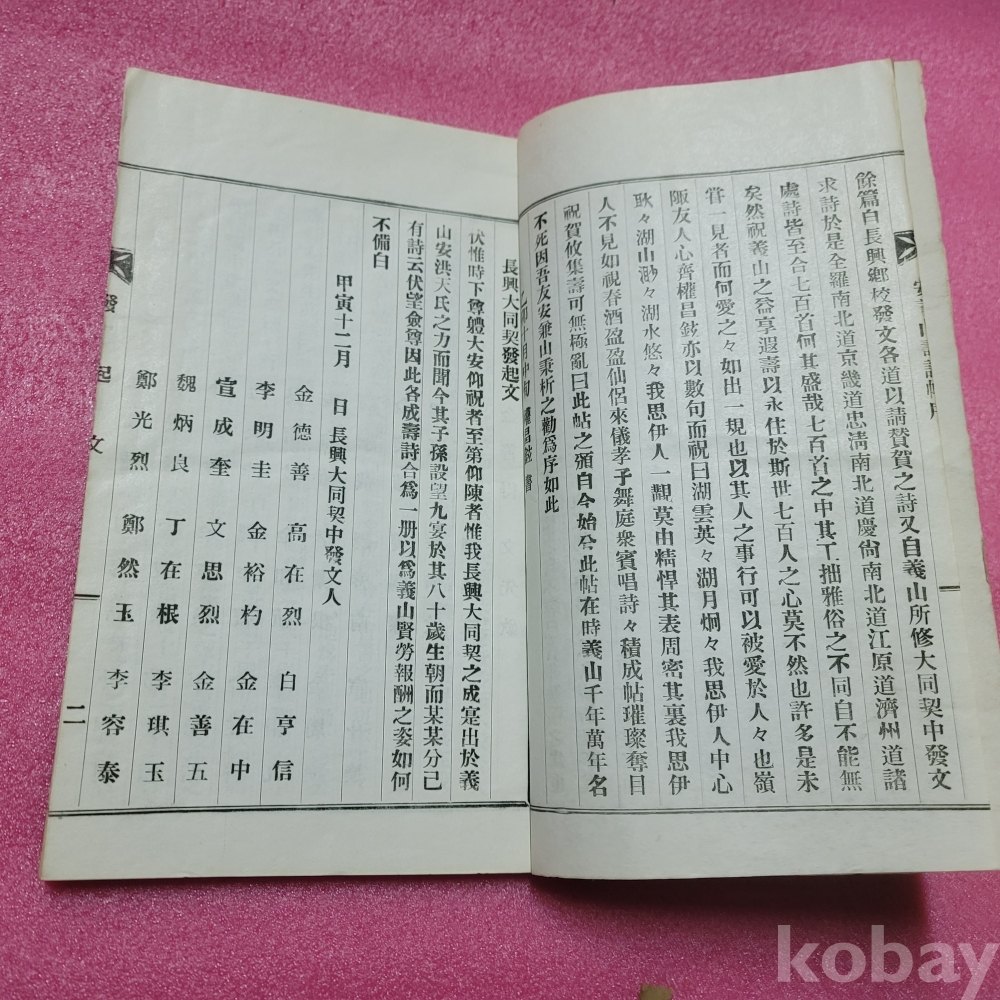 餘篇自長興鄕校發文各道以請賛賀之詩又自義山所修大同契中發文
求詩於是全羅南北道京畿道忠淸南北道慶尙南北道江原道濟州道諸
處詩皆至合七百首何其盛哉七百首之中其工拙雅俗之不同自不能無
矣然祝義山之益享遐壽以永住於斯世七百人之心莫不然也許多是未
甞一見者而何愛之々如出一規也以其人之事行可以被愛於人々也嶺
陬友人心齊權昌鉉亦以數句而祝曰湖雲英々湖月炯々我思伊人中心
耿々湖山渺々湖水悠々我思伊人一覯莫由精悍其表周密其裏我思伊
人不見如祝春酒盈盈仙侶來儀孝子舞庭衆賓唱詩々積成帖璀璨奪目
祝賀攸集壽可無極亂曰此帖之頒自今始兮此帖在時義山千年萬年名
不死因吾友安兼山秉析之勸爲序如此
長興大同契發起文
伏惟時下尊軆大安仰祝者至第仰陳者惟我長興大同契之成寔出於義
山安洪天氏之力而聞今其子孫設望九宴於其八十歲生朝而某某分己
有詩云伏望僉尊因此各成壽詩合爲一册以爲義山賢勞報酬之姿如何
不備白
甲寅十二月 日 長興大同契中發文人
金德善 高在烈 白亨信
李明圭 金裕杓 金在中
宣成奎 文思烈 金善五
魏炳良 丁在根 李琪玉
鄭光烈 鄭然玉 李容泰
發起文 二
kobay